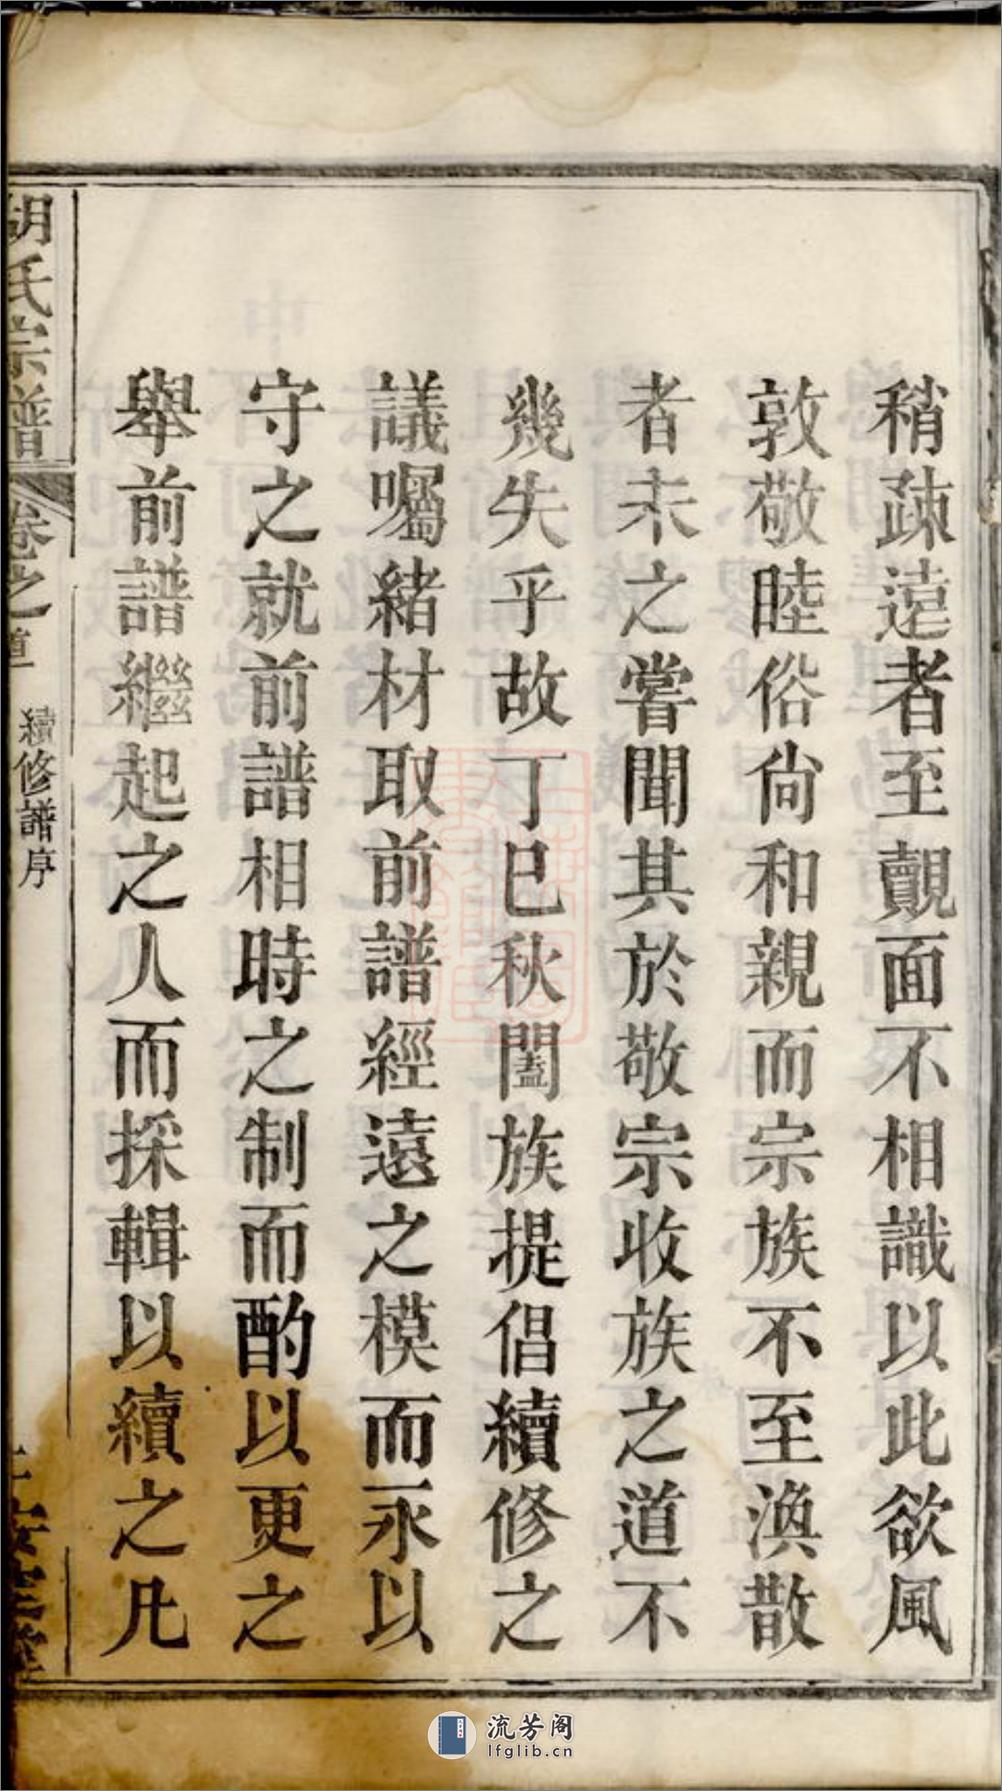 稍疎遠者至覿面不相識以此欲風
敦敬睦俗尙和親而宗族不至渙散
者未之嘗聞其於敬宗收族之道不
幾失乎故丁巳秋闔族提倡續修之
議囑緒材取前譜經遠之模而永以
守之就前譜相時之制而酌以更之
舉前譜繼起之人而採輯以續之凡
胡氏宗譜
卷之首
續修譜序
流芳阁
lfglib.cn